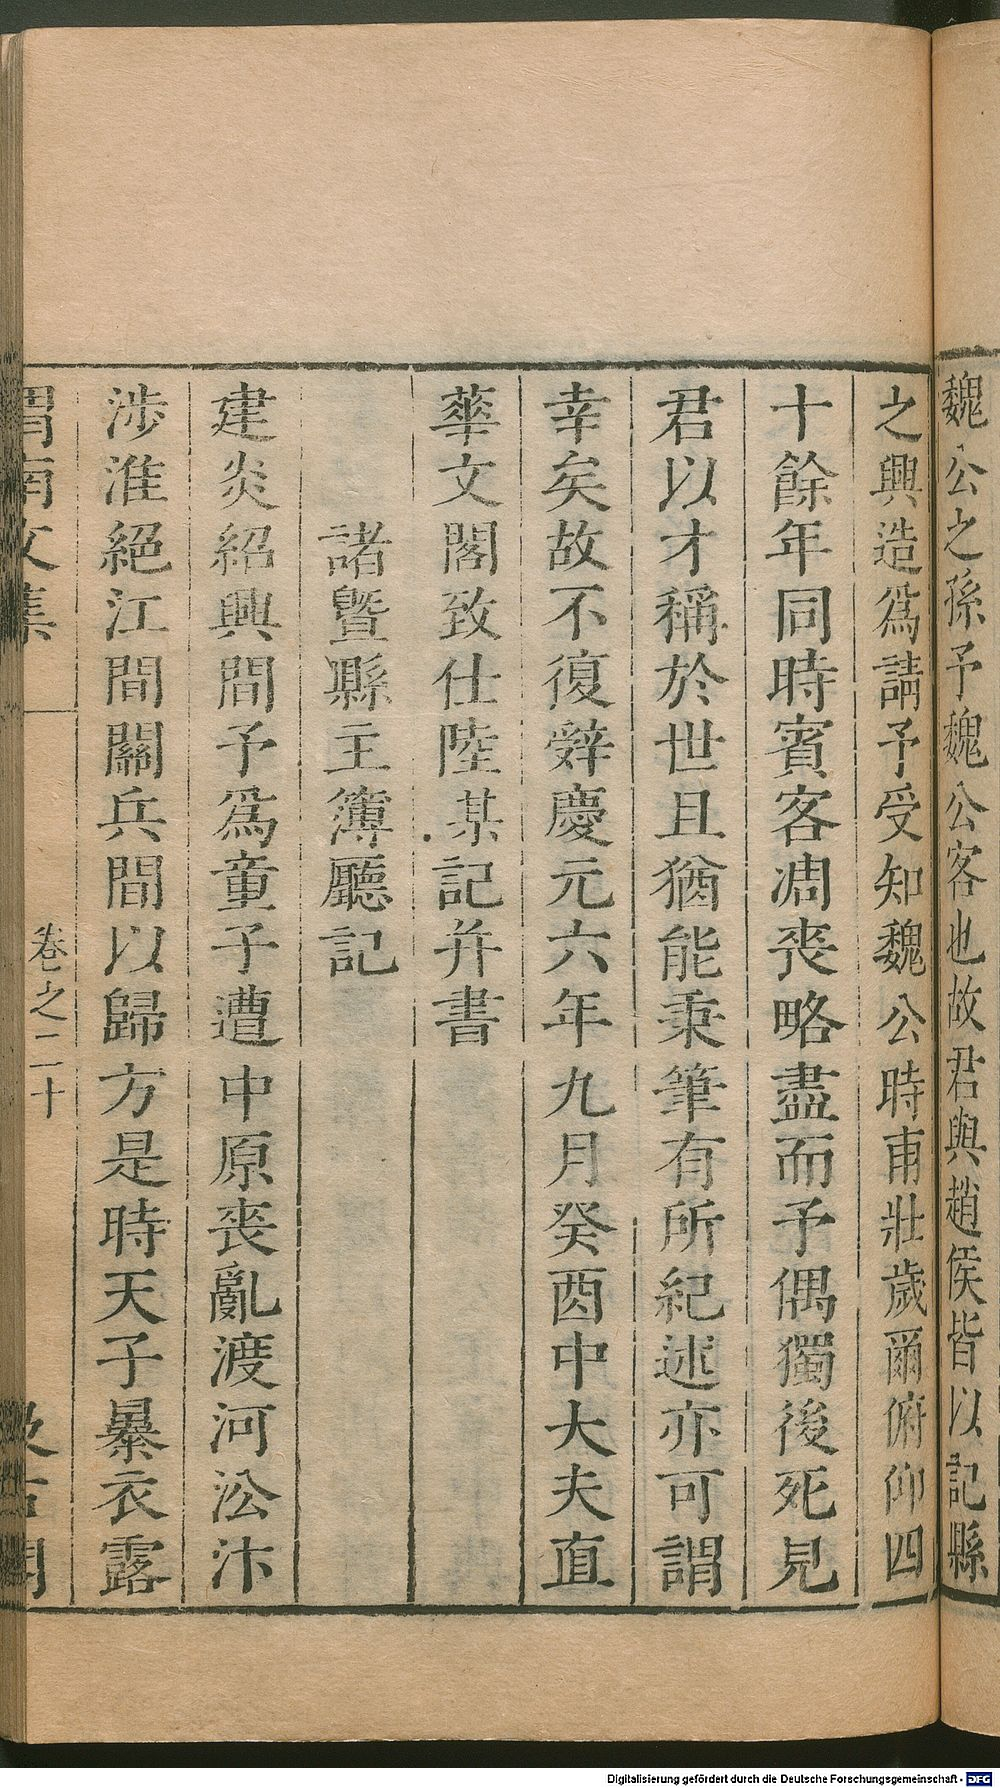 魏公之孫予魏公客也故君與趙侯皆以記縣
之興造爲請予受知魏公時甫壯歲爾俯仰四
十餘年同時賓客凋喪略盡而予偶獨後死見
君以才稱於世且猶能秉筆有所紀述亦可謂
幸矣故不復辤慶元六年九月癸酉中大夫直
華文閣致仕陸某記并書
諸曁縣主簿廳記
建炎紹興間予爲童子遭中原喪亂渡河沿汴
涉淮絕江間關兵間以歸方是時天子暴衣露
渭南文集
卷之二十
汲古閣
Digitalisierung gefördert durch die Deutsche Forschungsgemeinschaft - DFG